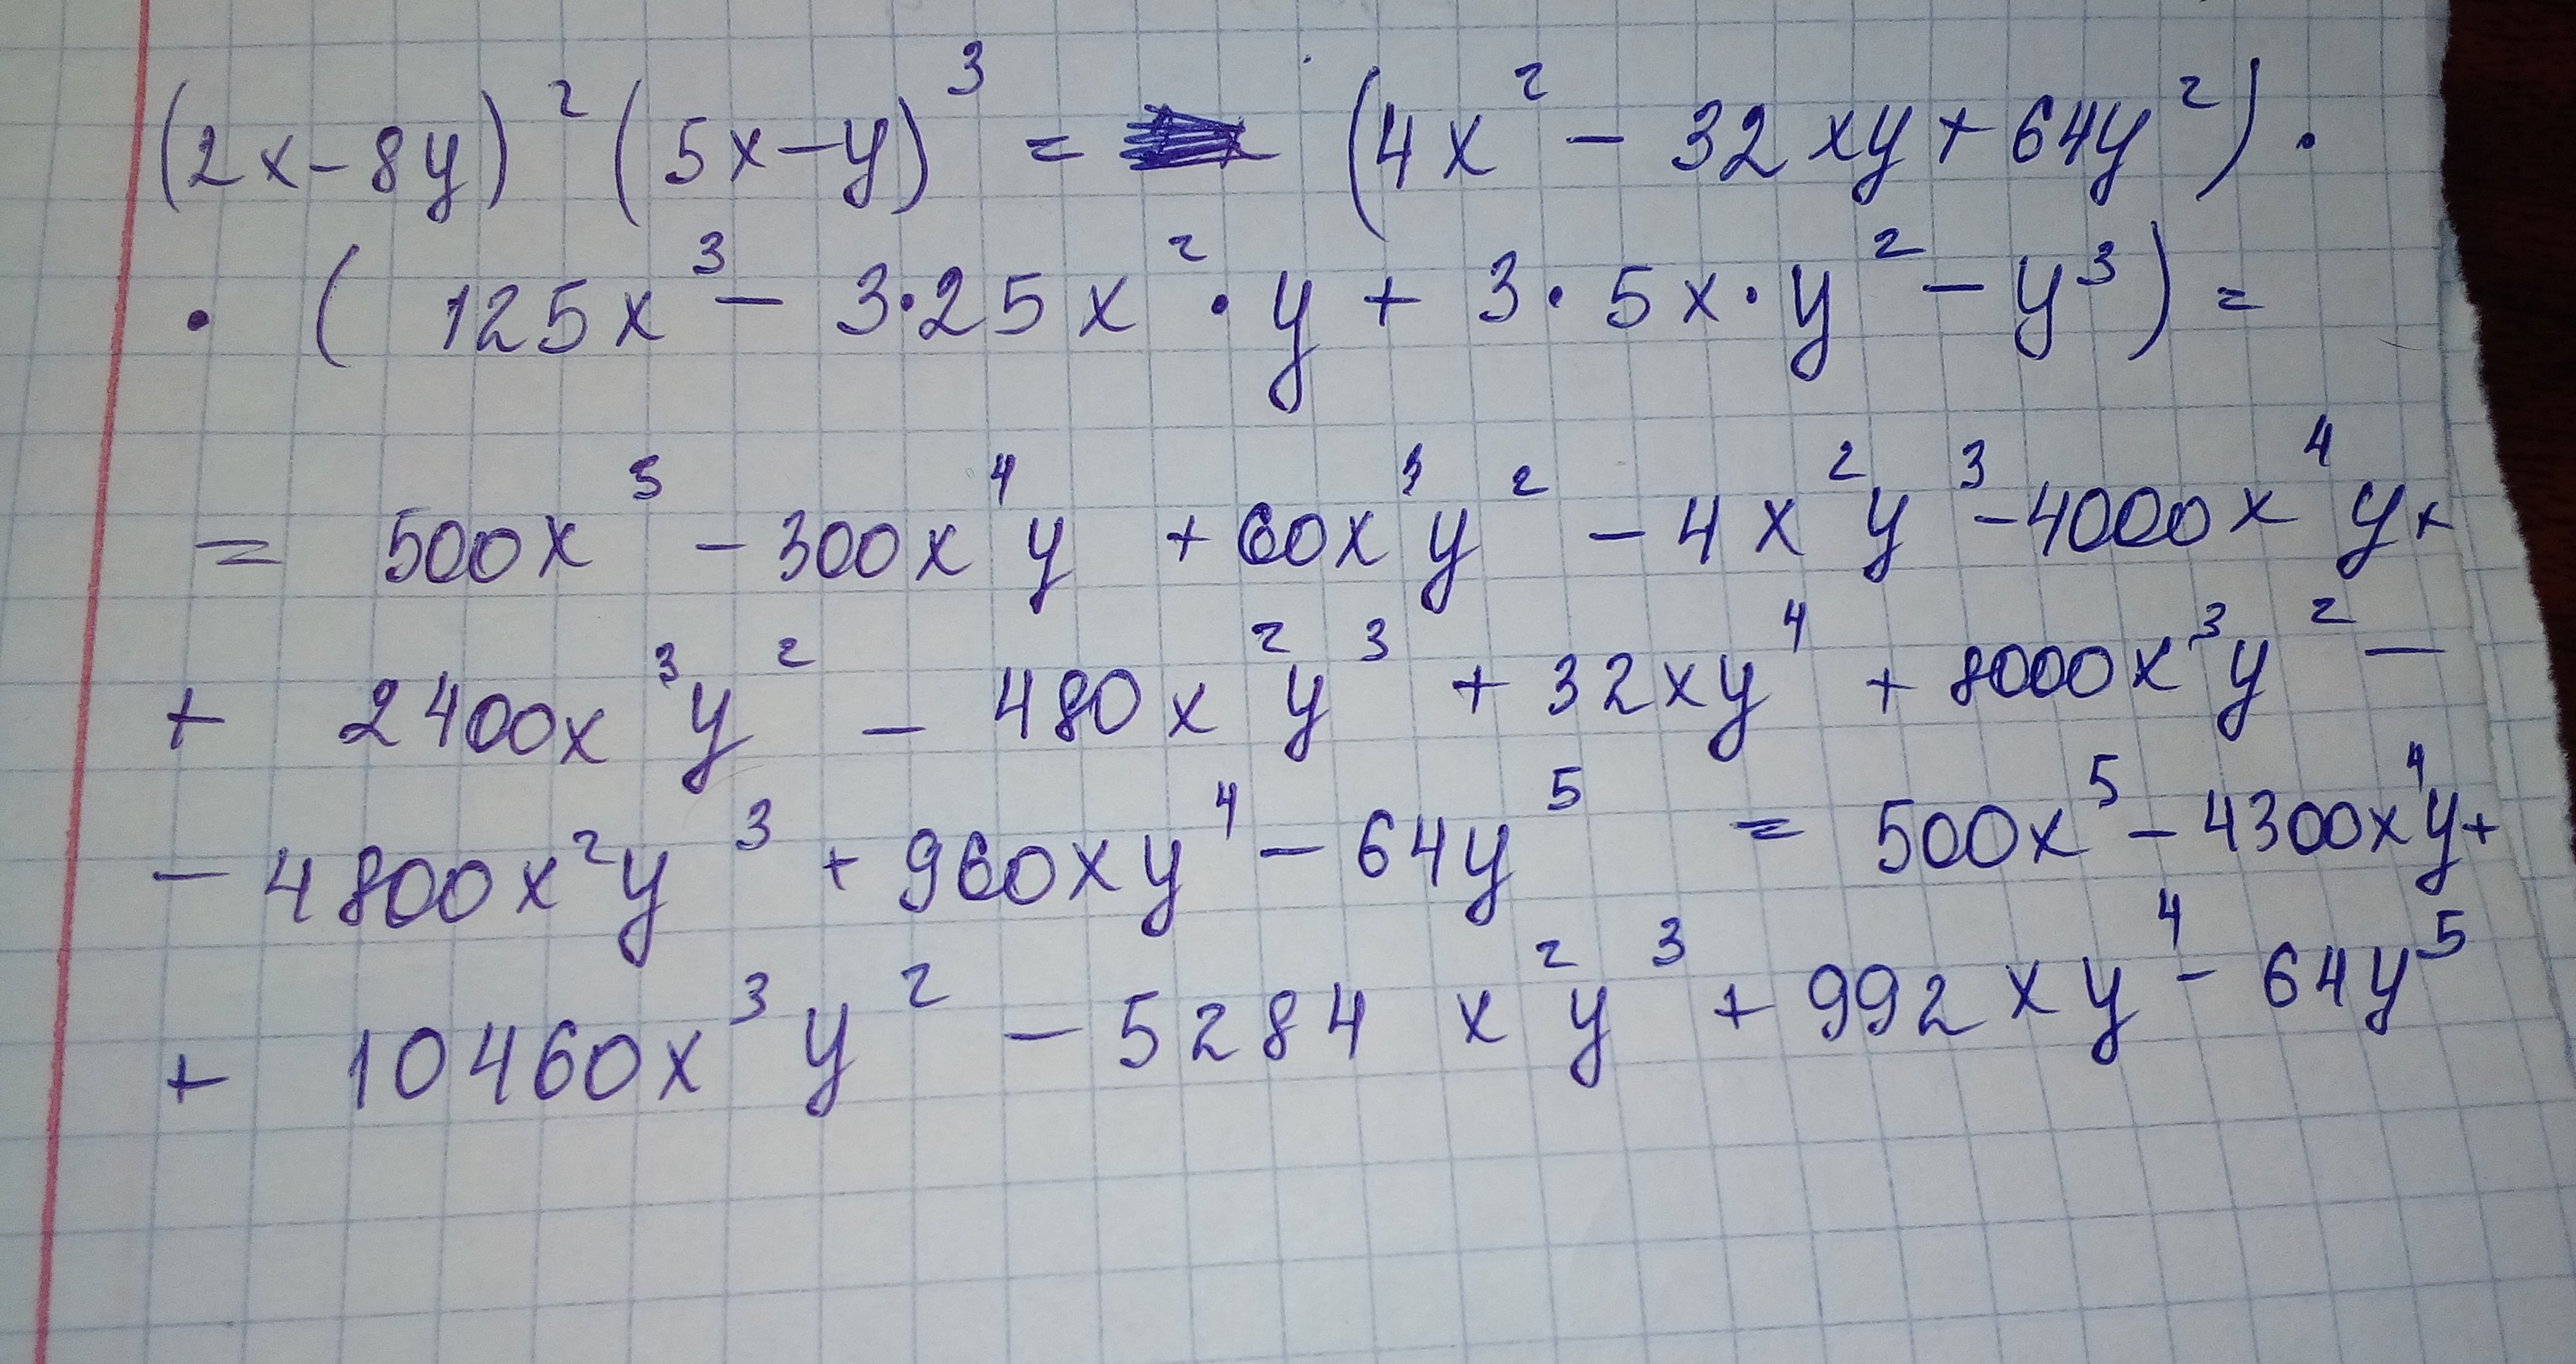 (2x-8y)² (5x-y)³ = (4x² - 32xy + 64y²) ·
· (125x³ - 3·25x² · y + 3·5x·y² - y³) =
= 500x⁵ - 300x⁴y + 60x³y² - 4x²y³ - 4000x⁴y +
+ 2400x³y² - 480x²y³ + 32xy⁴ + 8000x³y² -
- 4800x²y³ + 960xy⁴ - 64y⁵ = 500x⁵ - 4300x⁴y +
+ 10460x³y² - 5284x²y³ + 992xy⁴ - 64y⁵